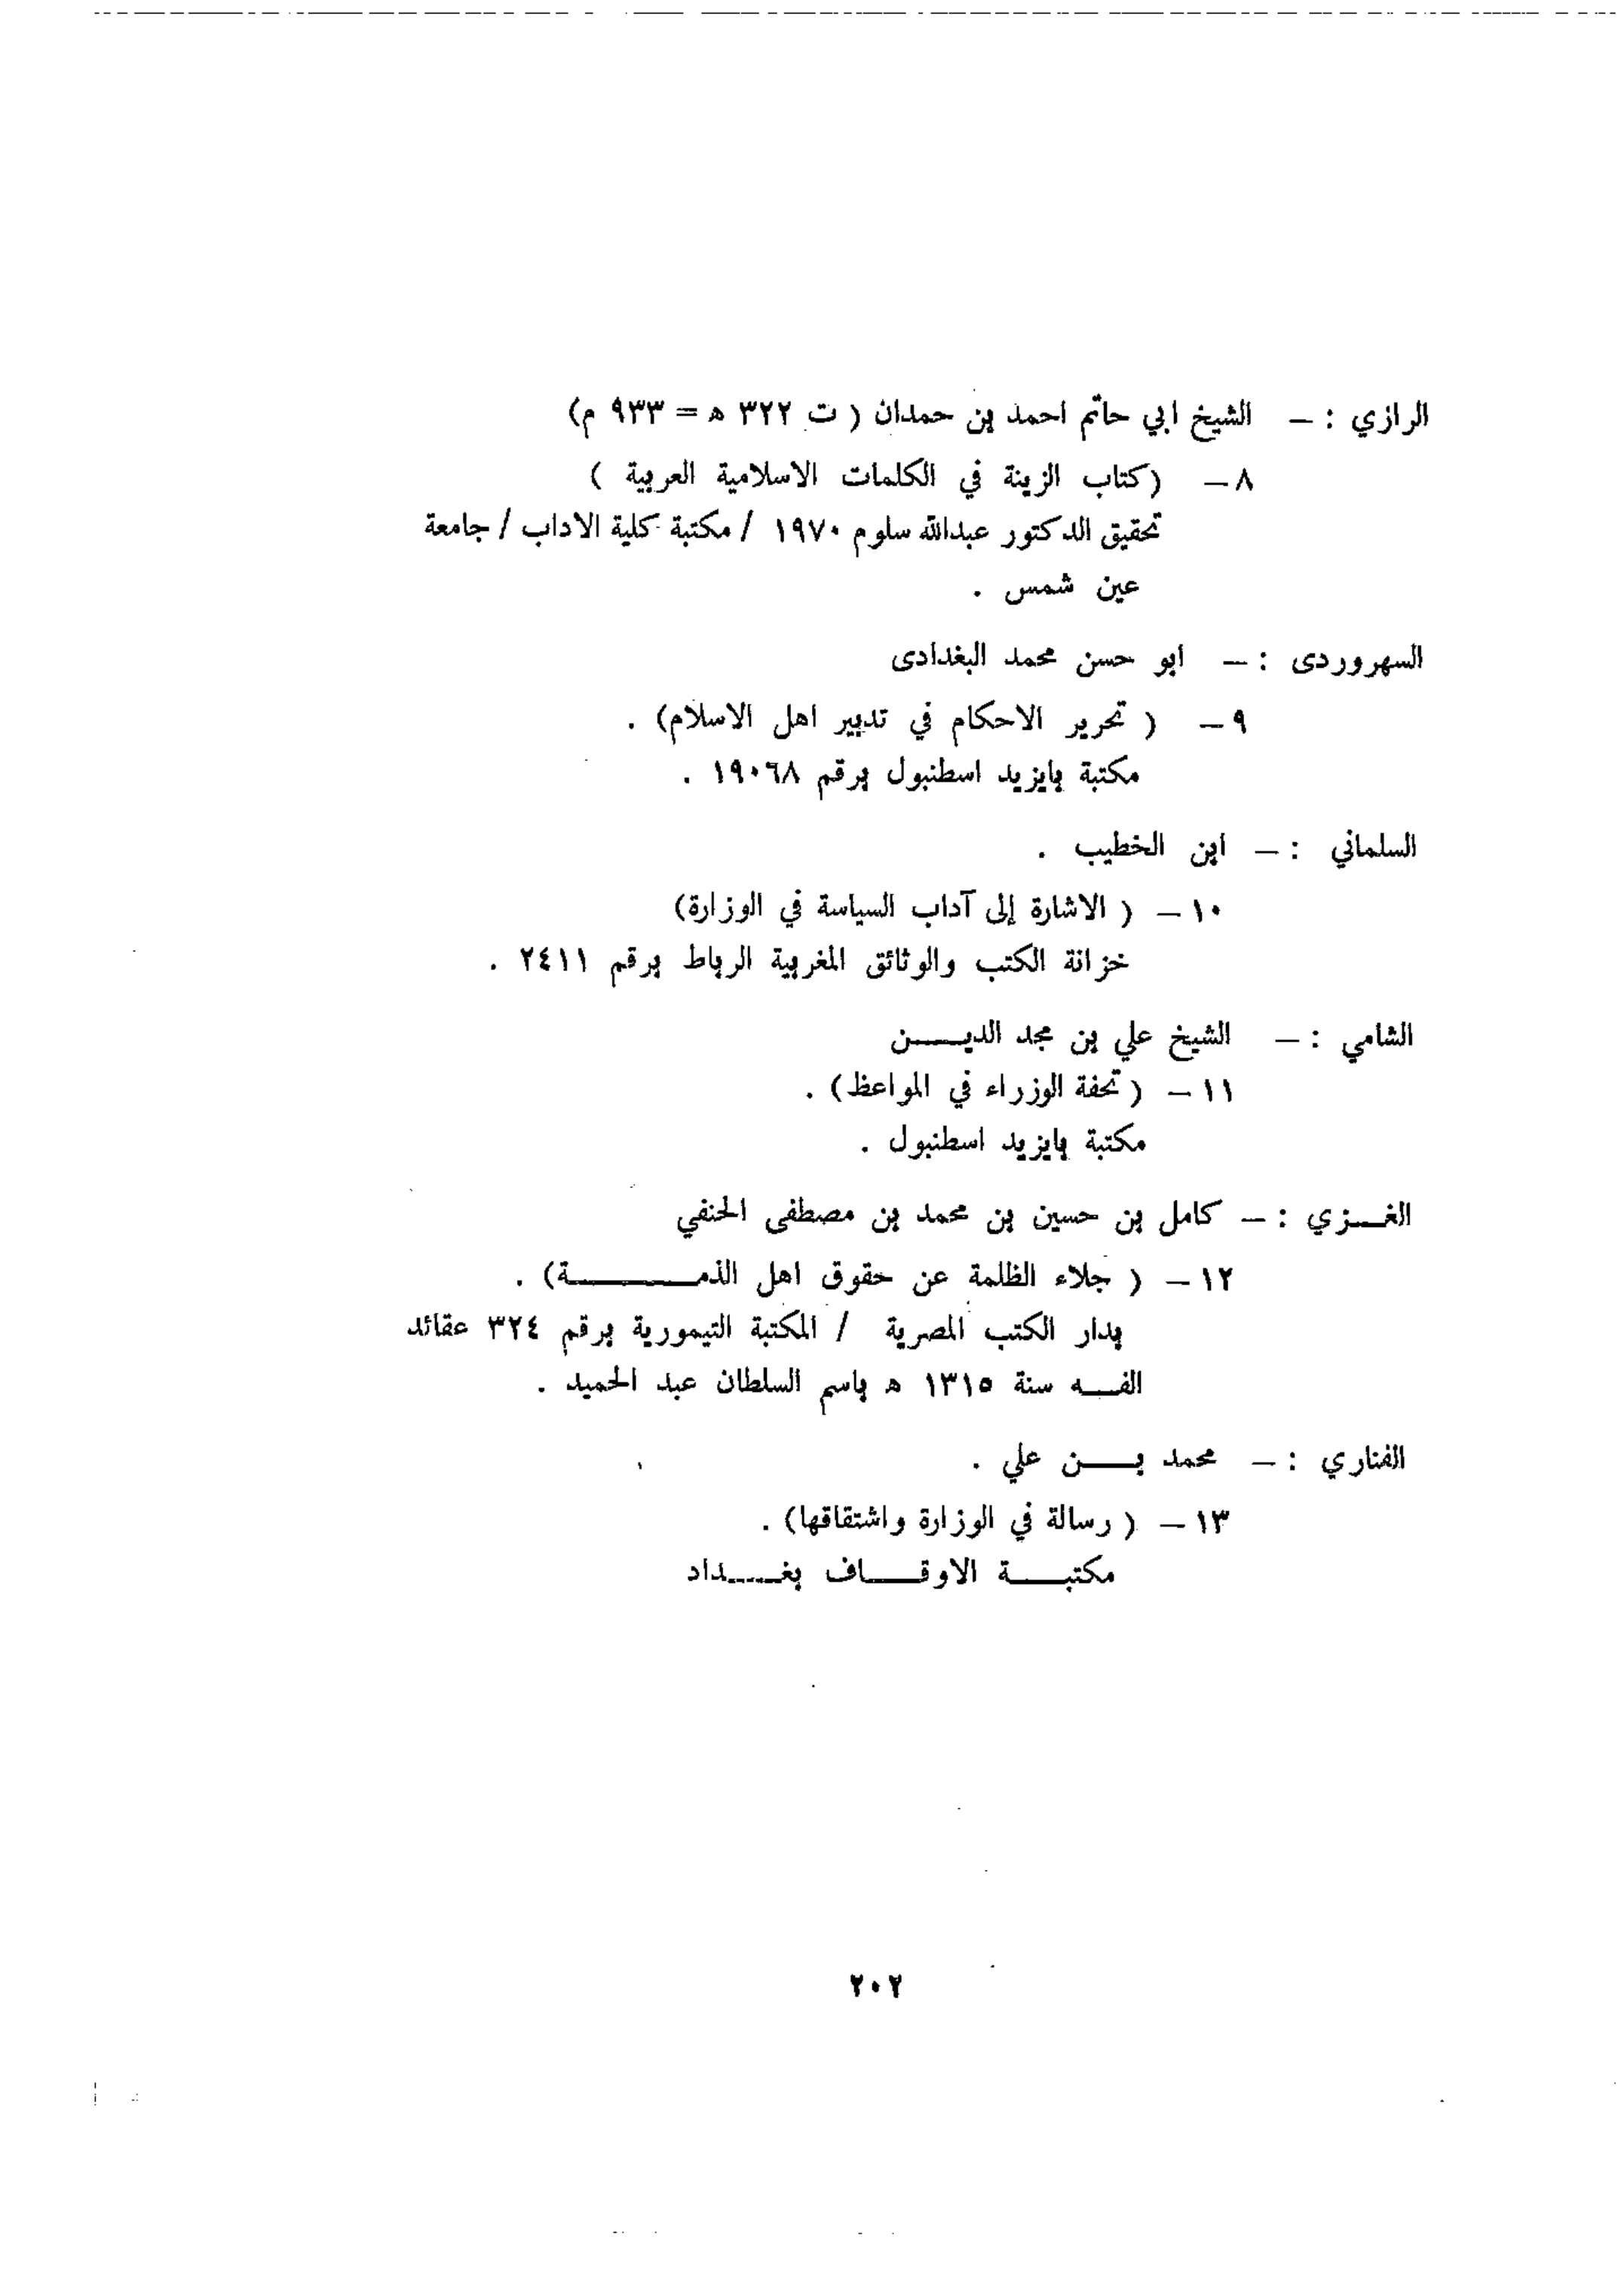 الرازي : — الشيخ ابي حاتم احمد بن حمدان ( ت ٣٢٢ ه = ٩٣٣ م)
٨ — (كتاب الزينة في الكلمات الاسلامية العربية )
تحقيق الدكتور عبدالله سلوم ١٩٧٠ / مكتبة كلية الاداب / جامعة
عين شمس .
السهروردى : — ابو حسن محمد البغدادى
٩ — ( تحرير الاحكام في تدبير اهل الاسلام) .
مكتبة بايزيد اسطنبول برقم ١٩٠٦٨ .
السلماني : — ابن الخطيب .
١٠ — ( الاشارة إلى آداب السياسة في الوزارة)
خزانة الكتب والوثائق المغربية الرباط برقم ٢٤١١ .
الشامي : — الشيخ علي بن مجد الديـــن
١١ — ( تحفة الوزراء في المواعظ) .
مكتبة بايزيد اسطنبول .
الغـــزي : — كامل بن حسين بن محمد بن مصطفى الحنفي
١٢ — ( جلاء الظلمة عن حقوق اهل الذمـــــــة) .
بدار الكتب المصرية / المكتبة التيمورية برقم ٣٢٤ عقائد
الفـــه سنة ١٣١٥ ه باسم السلطان عبد الحميد .
الفناري : — محمد بـــن علي .
١٣ — ( رسالة في الوزارة واشتقاقها) .
مكتبـــة الاوقـــاف بغـــداد
٢٠٢